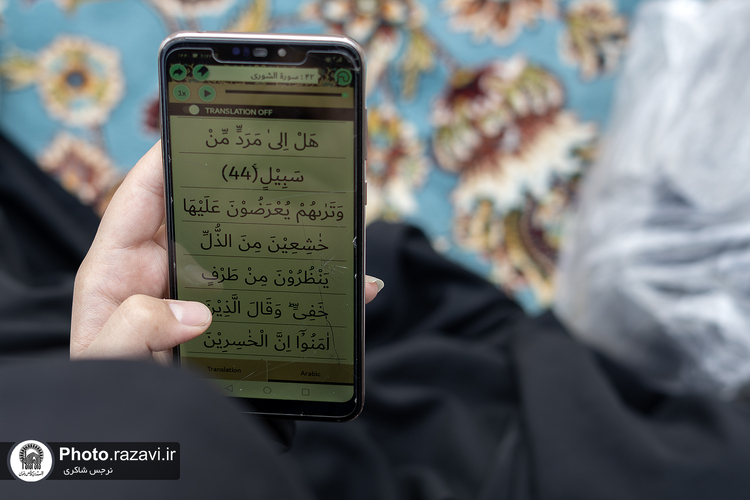 ٤٢: سورة الشورى
TRANSLATION OFF
هَلْ اِلىٰ مَرَدٍّ مِّنْ
سَبِيْلٍ(44)
وَتَرٰىهُمْ يُعْرَضُوْنَ عَلَيْهَا
خٰشِعِيْنَ مِنَ الذُّلِّ
يَنْظُرُوْنَ مِنْ طَرْفٍ
خَفِىٍّ ۗ وَقَالَ الَّذِيْنَ
اٰمَنُوْٓا اِنَّ الْخٰسِرِيْنَ
Translation Arabic
Photo.razavi.ir
نرجس شاکری